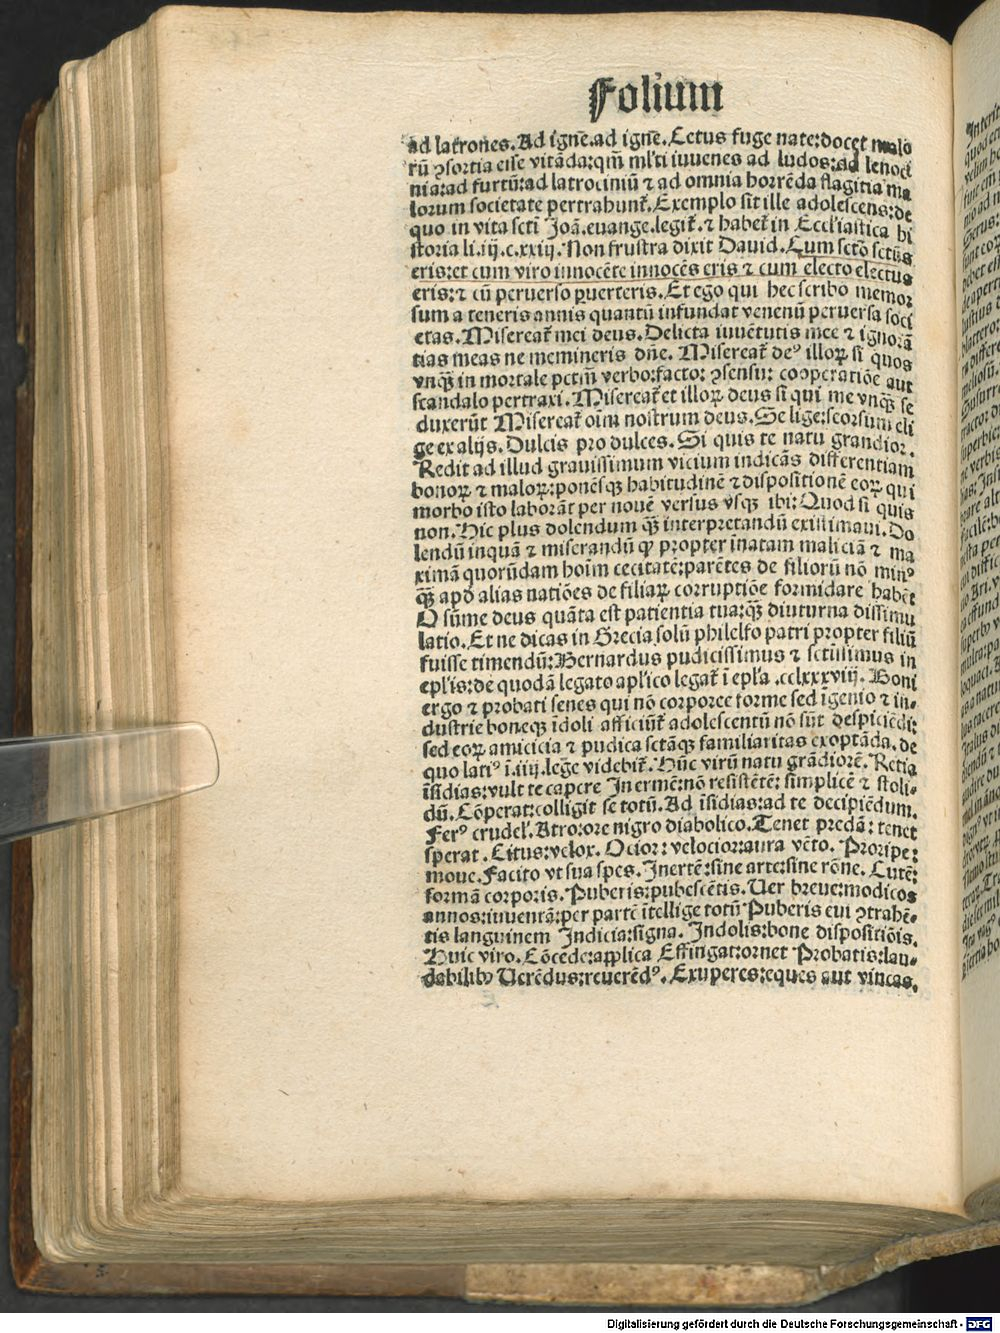 Folium
ad latrones. Ad ignē. ad ignē. Cetus fuge nate: docet malo
rū ꝯsortia eſſe vitāda: qm̄ ml'ti iuuenes ad ludos: ad lenoci
nia: ad furtū: ad latrociniū ⁊ ad omnia horrēda flagitia ma
lorum societate pertrahunt̄. Exemplo sit ille adolescens: de
quo in vita scti Joā. euange. legit̄. ⁊ habet̄ in Eccl'iastica hi
storia li. iij. c. xxiij. Non frustra dixit Dauid. Cum sctō sctūs
eris: et cum viro innocēte innocēs eris ⁊ cum electo electus
eris: ⁊ cū peruerso ꝑuerteris. Et ego qui hec scribo memor
sum a teneris annis quantū infundat venenū peruersa soci
etas. Misereat̄ mei deus. Delicta iuuētutis mee ⁊ ignorā
tias meas ne memineris dn̄e. Misereat̄ deꝰ illoꝝ si quos
vnqꝫ in mortale pctm̄ verbo: facto: ꝯsensu: cooperatiōe aut
scandalo pertraxi. Misereat̄ et illoꝝ deus si qui me vnqꝫ se
duxerūt Misereat̄ oīm nostrum deus. Se lige: seorsum eli
ge ex alijs. Dulcis pro dulces. Si quis te natu grandior.
Redit ad illud grauissimum vicium indicās differentiam
bonoꝝ ⁊ maloꝝ: ponēsqꝫ habitudinē ⁊ dispositionē eoꝝ qui
morbo isto laborāt per nouē versus vsqꝫ ibi: Quod si quis
non. Hic plus dolendum qꝫ interpretandū existimaui. Do
lendū inquā ⁊ miserandū ꝙ propter īnatam maliciā ⁊ ma
ximā quorūdam hoīm cecitatē: parētes de filiorū nō minꝰ
qꝫ apd alias natiōes de filiaꝝ corruptiōe formidare habēt
O sūme deus quāta est patientia tua: qꝫ diuturna dissimu
latio. Et ne dicas in Grecia solū philelfo patri propter filiū
fuisse timendū: Bernardus pudicissimus ⁊ sctissimus in
epl'is: de quodā legato apl'ico legat̄ ī epl'a .cclxxxviij. Boni
ergo ⁊ probati senes qui nō corporee forme sed īgenio ⁊ in-
dustrie boneqꝫ īdoli afficiūt̄ adolescentū nō sūt despiciēdi:
sed eoꝝ amicicia ⁊ pudica sctāqꝫ familiaritas exoptāda. de
quo latiꝰ ī .iiij. lege videbit̄. Hūc virū natu grādiorē. Retia
īsidias: vult te capere Inermē: nō resistētē: simplicē ⁊ stoli-
dū. Cōperat: colligit se totū. Ad īsidias: ad te decipiēdum.
Ferꝰ crudel'. Atro: ore nigro diabolico. Tenet predā: tenet
sperat. Citus: velox. Ocior: velocior: aura vēto. Proripe:
moue. Facito vt sua spes. Inertē: sine arte: sine rōne. Cutē:
formā corporis. Puberis: pubescētis. Uer breue: modicos
annos: iuuentā: per partē ītellige totū Puberis eui ꝯtrahē-
tis sanguinem Indicia: signa. Indolis: bone dispositiōis.
Huic viro. Cōcede: applica Effingat: ornet Probatis: lau-
dabilibꝫ Uerēdus: reuerēdꝰ. Exuperes: eques aut vincas.
Digitalisierung gefördert durch die Deutsche Forschungsgemeinschaft - DFG